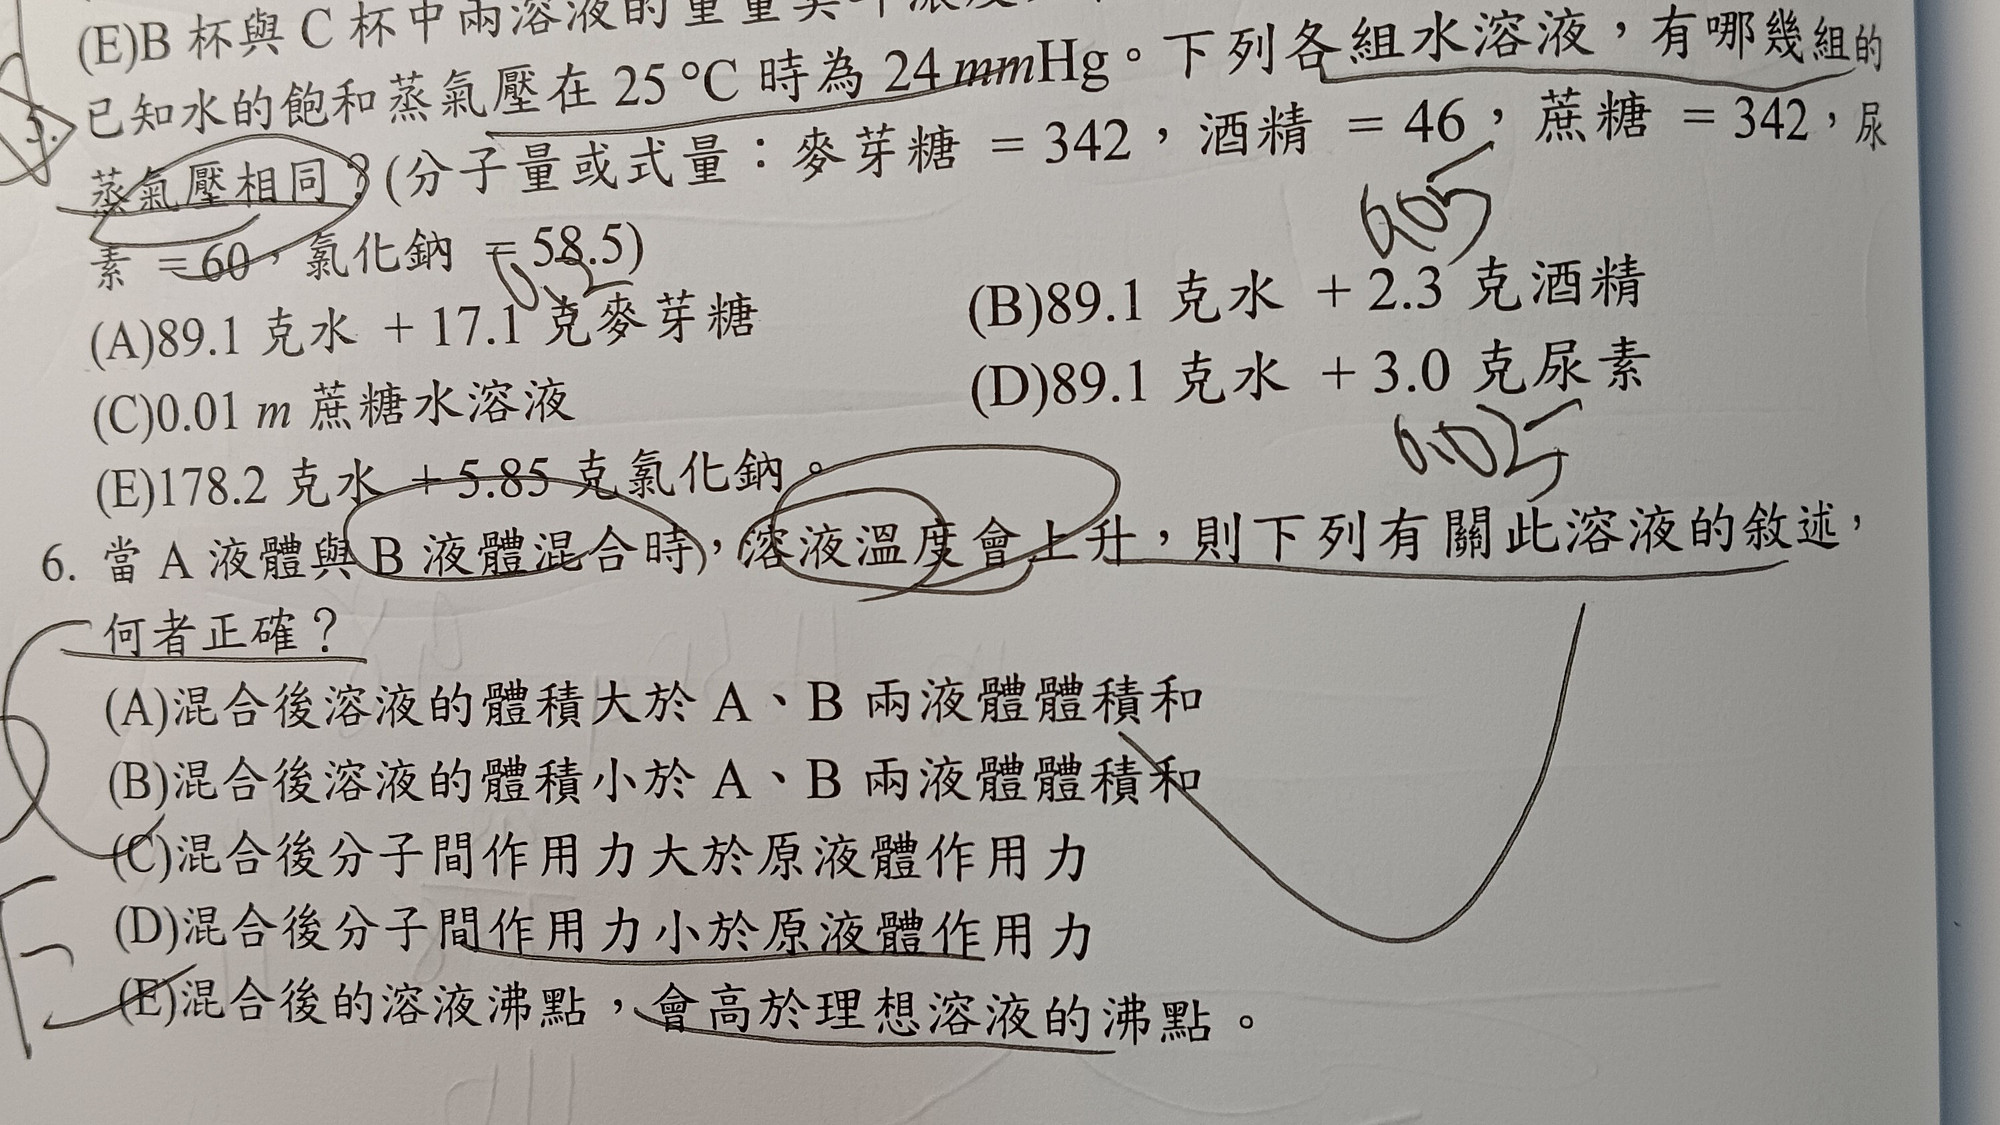 (E)B 杯與 C 杯中兩溶液的重量
5. 已知水的飽和蒸氣壓在 25 °C 時為 24 mmHg。下列各組水溶液,有哪幾組的
蒸氣壓相同?(分子量或式量:麥芽糖 = 342,酒精 = 46,蔗糖 = 342,尿
0.05
素 = 60,氯化鈉 = 58.5)
(A)89.1 克水 + 17.1 克麥芽糖
(B)89.1 克水 + 2.3 克酒精
(C)0.01 m 蔗糖水溶液
(D)89.1 克水 + 3.0 克尿素
(E)178.2 克水 + 5.85 克氯化鈉。
6. 當 A 液體與 B 液體混合時,溶液溫度會上升,則下列有關此溶液的敘述,
何者正確?
(A)混合後溶液的體積大於 A、B 兩液體體積和
(B)混合後溶液的體積小於 A、B 兩液體體積和
(C)混合後分子間作用力大於原液體作用力
(D)混合後分子間作用力小於原液體作用力
(E)混合後的溶液沸點,會高於理想溶液的沸點。